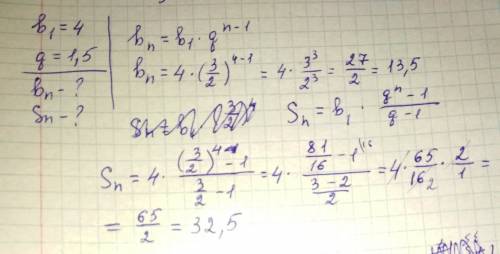 b₁ = 4
q = 1,5
bₙ - ?
Sₙ - ?
bₙ = b₁ · qⁿ⁻¹
bₙ = 4 · (3/2)⁴⁻¹ = 4 · 3³/2³ = 27/2 = 13,5
Sₙ = b₁ · (qⁿ - 1)/(q - 1)
Sₙ = 4 · ((3/2)⁴ - 1)/(3/2 - 1) = 4 · (81/16 - 1\¹⁶)/((3 - 2)/2) = 4 · 65/16₂ · 2/1 =
= 65/2 = 32,5